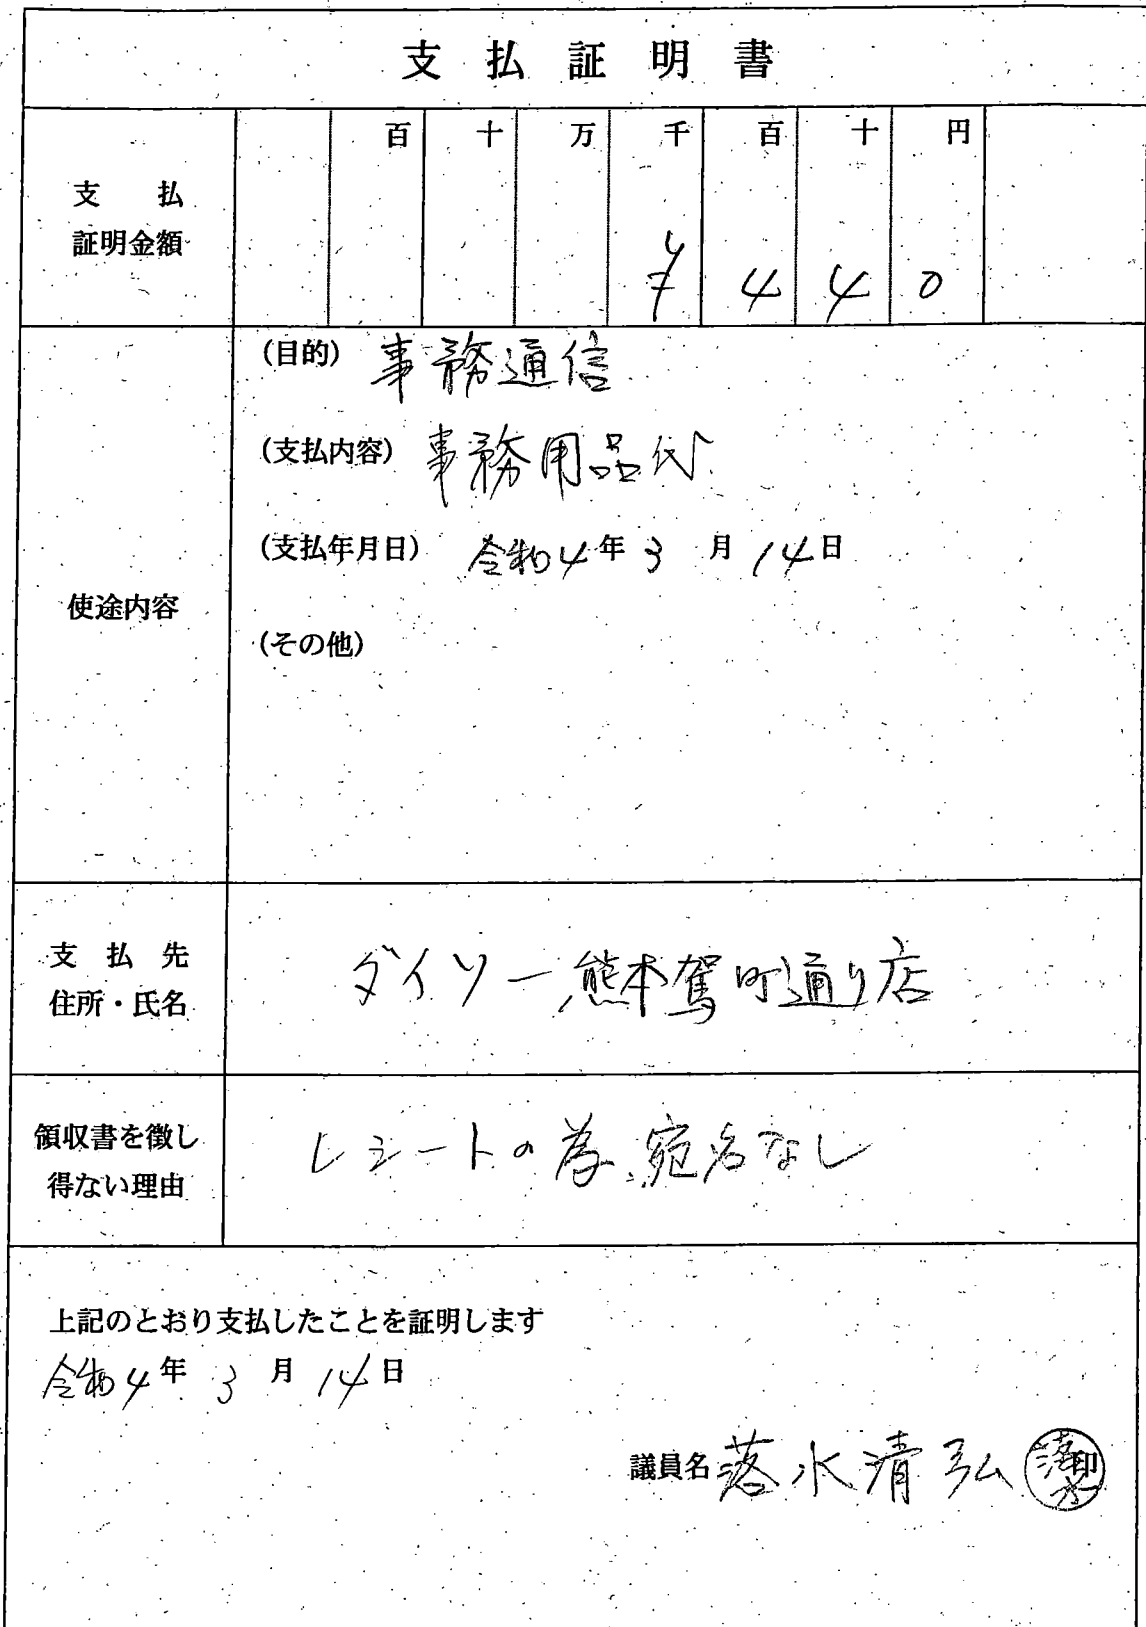 支払証明書
百 十 万 千 百 十 円
支払
証明金額
¥ 4 4 0
(目的) 事務通信
(支払内容) 事務用品代
(支払年月日) 令和4年3月14日
使途内容
(その他)
支払先
住所・氏名
ダイソー熊本駕町通り店
領収書を徴し
得ない理由
レシートの為、宛名なし
上記のとおり支払したことを証明します
令和4年3月14日
議員名 落水清弘 印